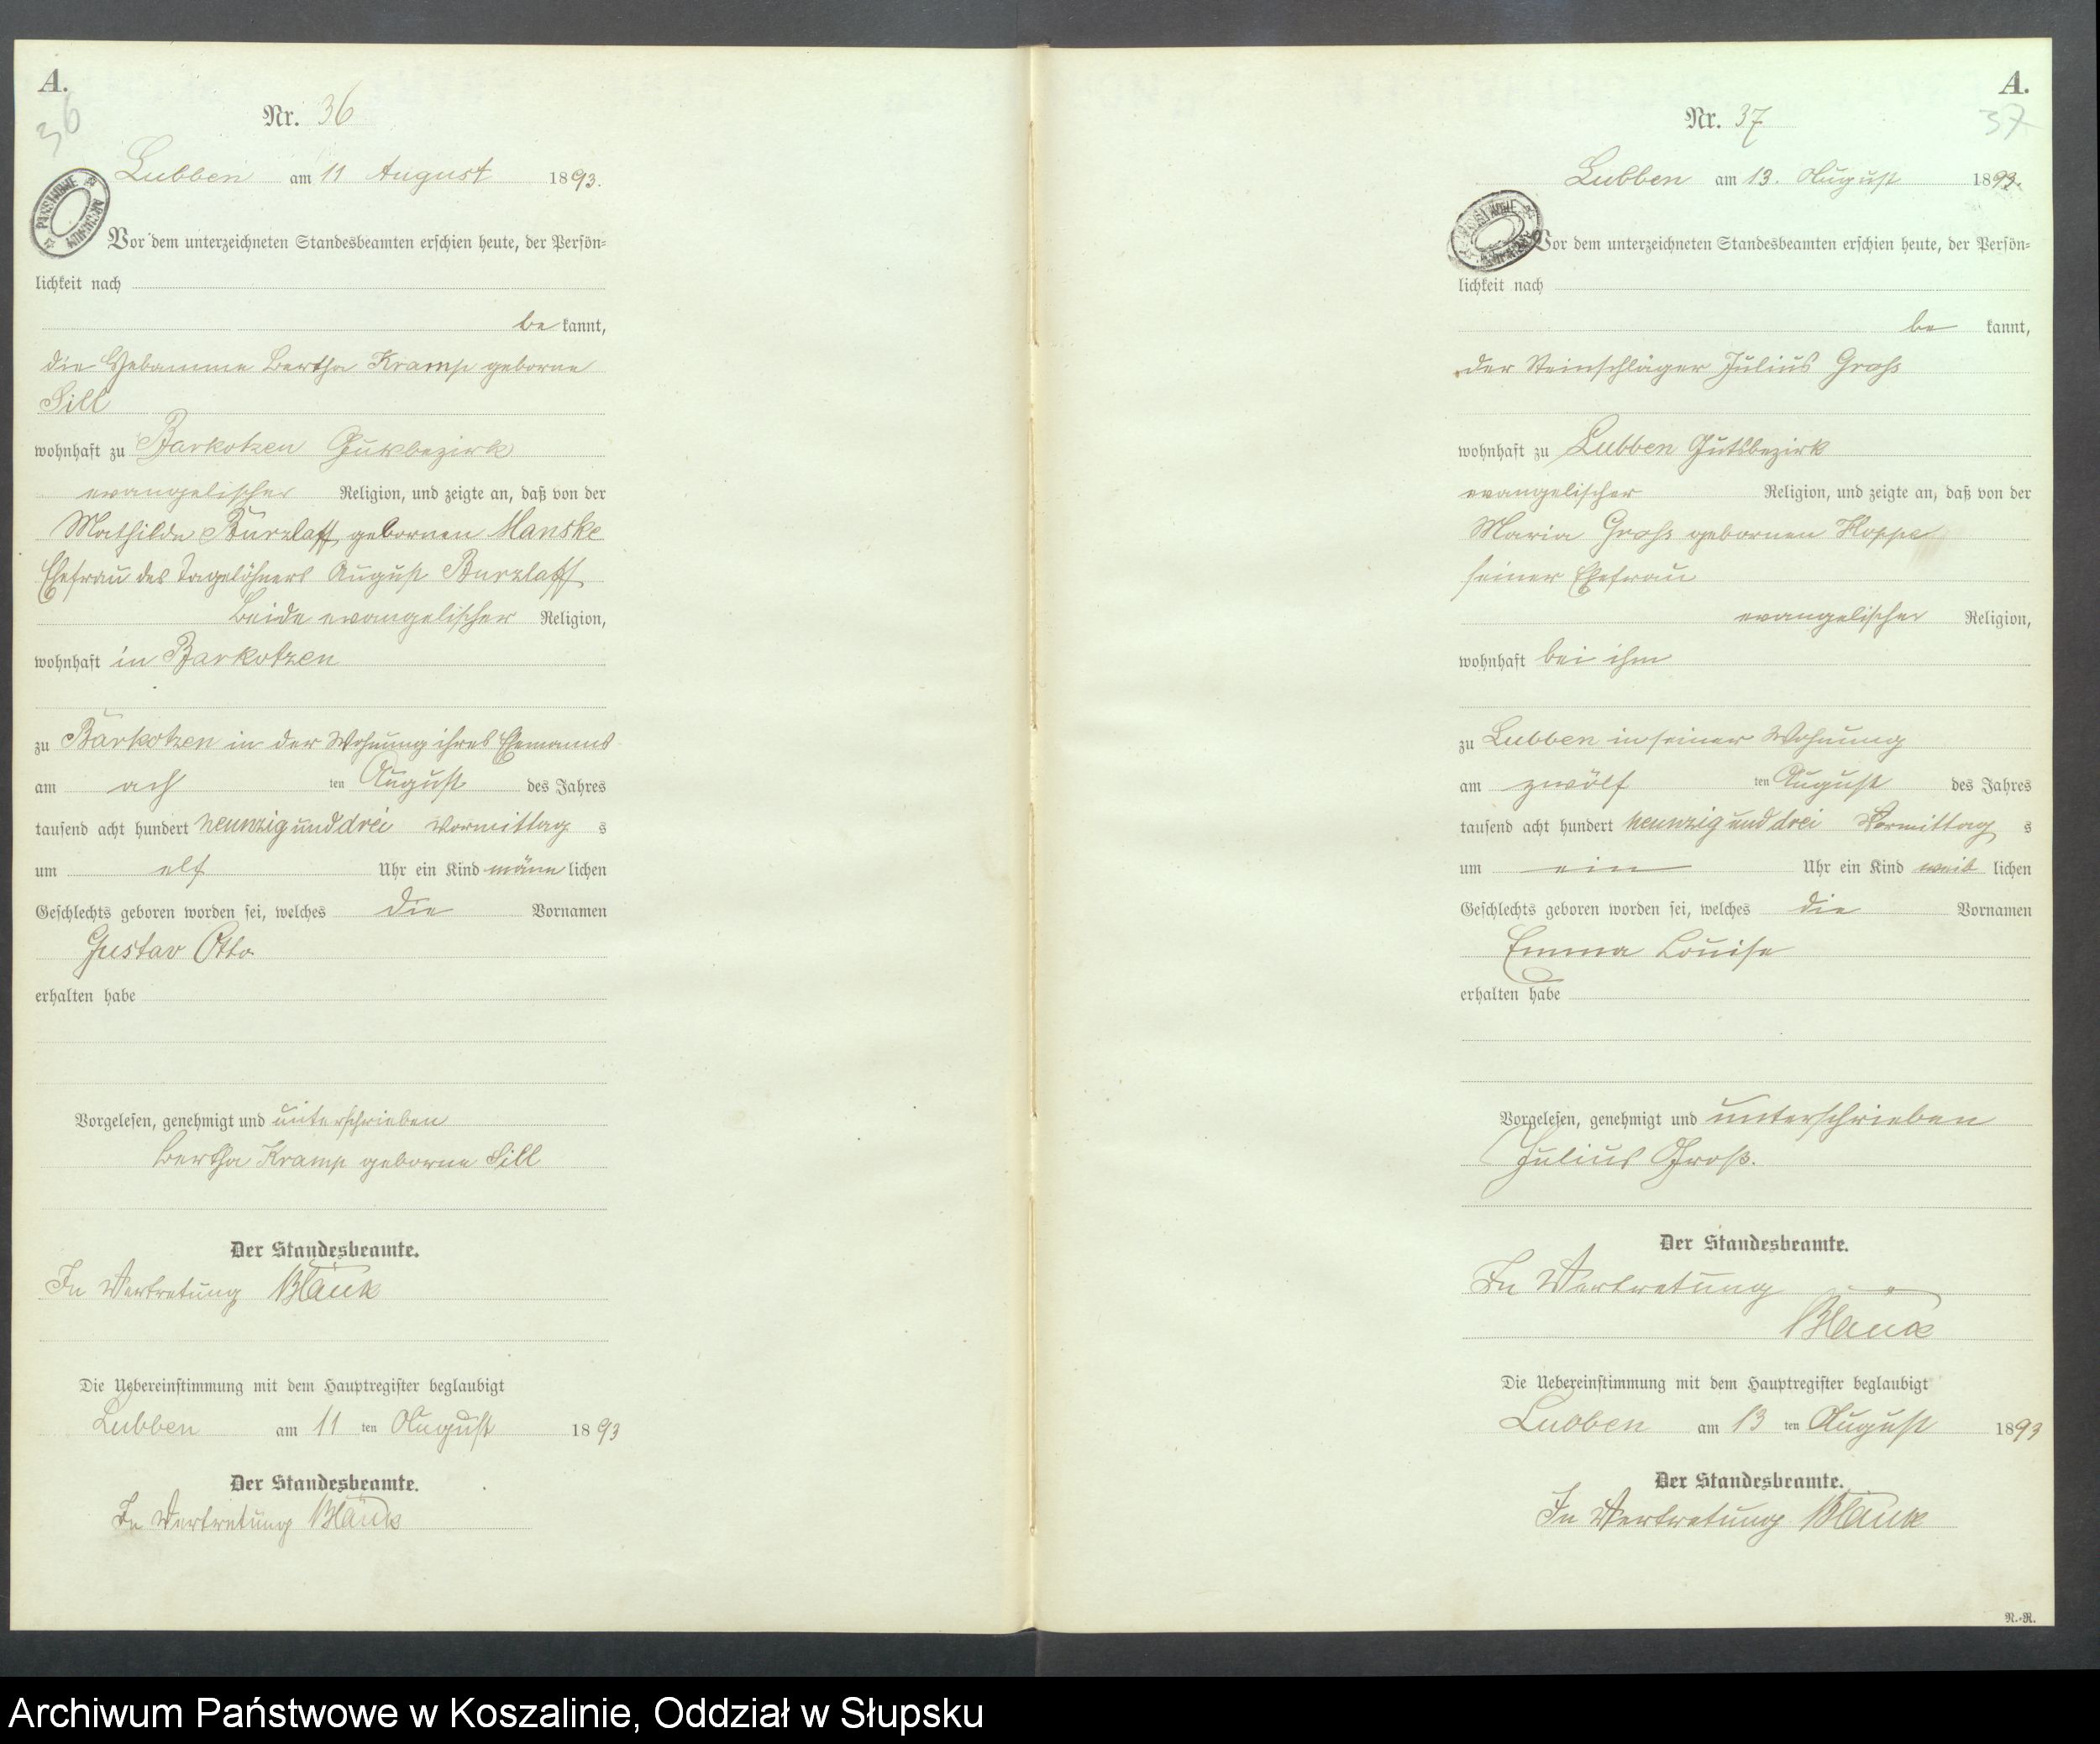 A.
36
Nr. 36
Lubben am 11 August 1893.
PAŃSTWOWE ARCHIWUM
Vor dem unterzeichneten Standesbeamten erschien heute, der Persön=
lichkeit nach
be kannt,
die Hebamme Bertha Kramp geborne
Sill
wohnhaft zu Barkotzen Gutsbezirk
evangelischer Religion, und zeigte an, daß von der
Mathilde Burzlaff gebornen Manske
Ehefrau des Tagelöhners August Burzlaff
beide evangelischer Religion,
wohnhaft in Barkotzen
zu Barkotzen in der Wohnung ihres Ehemanns
am ach ten August des Jahres
tausend acht hundert neunzig und drei Vormittag s
um elf Uhr ein Kind männ lichen
Geschlechts geboren worden sei, welches die Vornamen
Gustav Otto
erhalten habe
Vorgelesen, genehmigt und unterschrieben
Bertha Kramp geborne Sill
Der Standesbeamte.
In Vertretung
Die Uebereinstimmung mit dem Hauptregister beglaubigt
Lubben am 11 ten August 1893
Der Standesbeamte.
In Vertretung
A.
37
Nr. 37
Lubben am 13. August 1893.
Vor dem unterzeichneten Standesbeamten erschien heute, der Persön=
lichkeit nach
be kannt,
der Steinschläger Julius Groß
wohnhaft zu Lubben Gutsbezirk
evangelischer Religion, und zeigte an, daß von der
Maria Groß gebornen Koppe
seiner Ehefrau
evangelischer Religion,
wohnhaft bei ihm
zu Lubben in seiner Wohnung
am zwölf ten August des Jahres
tausend acht hundert neunzig und drei Vormittag s
um ein Uhr ein Kind weib lichen
Geschlechts geboren worden sei, welches die Vornamen
Emma Louise
erhalten habe
Vorgelesen, genehmigt und unterschrieben
Julius Groß.
Der Standesbeamte.
In Vertretung
Die Uebereinstimmung mit dem Hauptregister beglaubigt
Lubben am 13 ten August 1893
Der Standesbeamte.
In Vertretung
N.-R.
Archiwum Państwowe w Koszalinie, Oddział w Słupsku